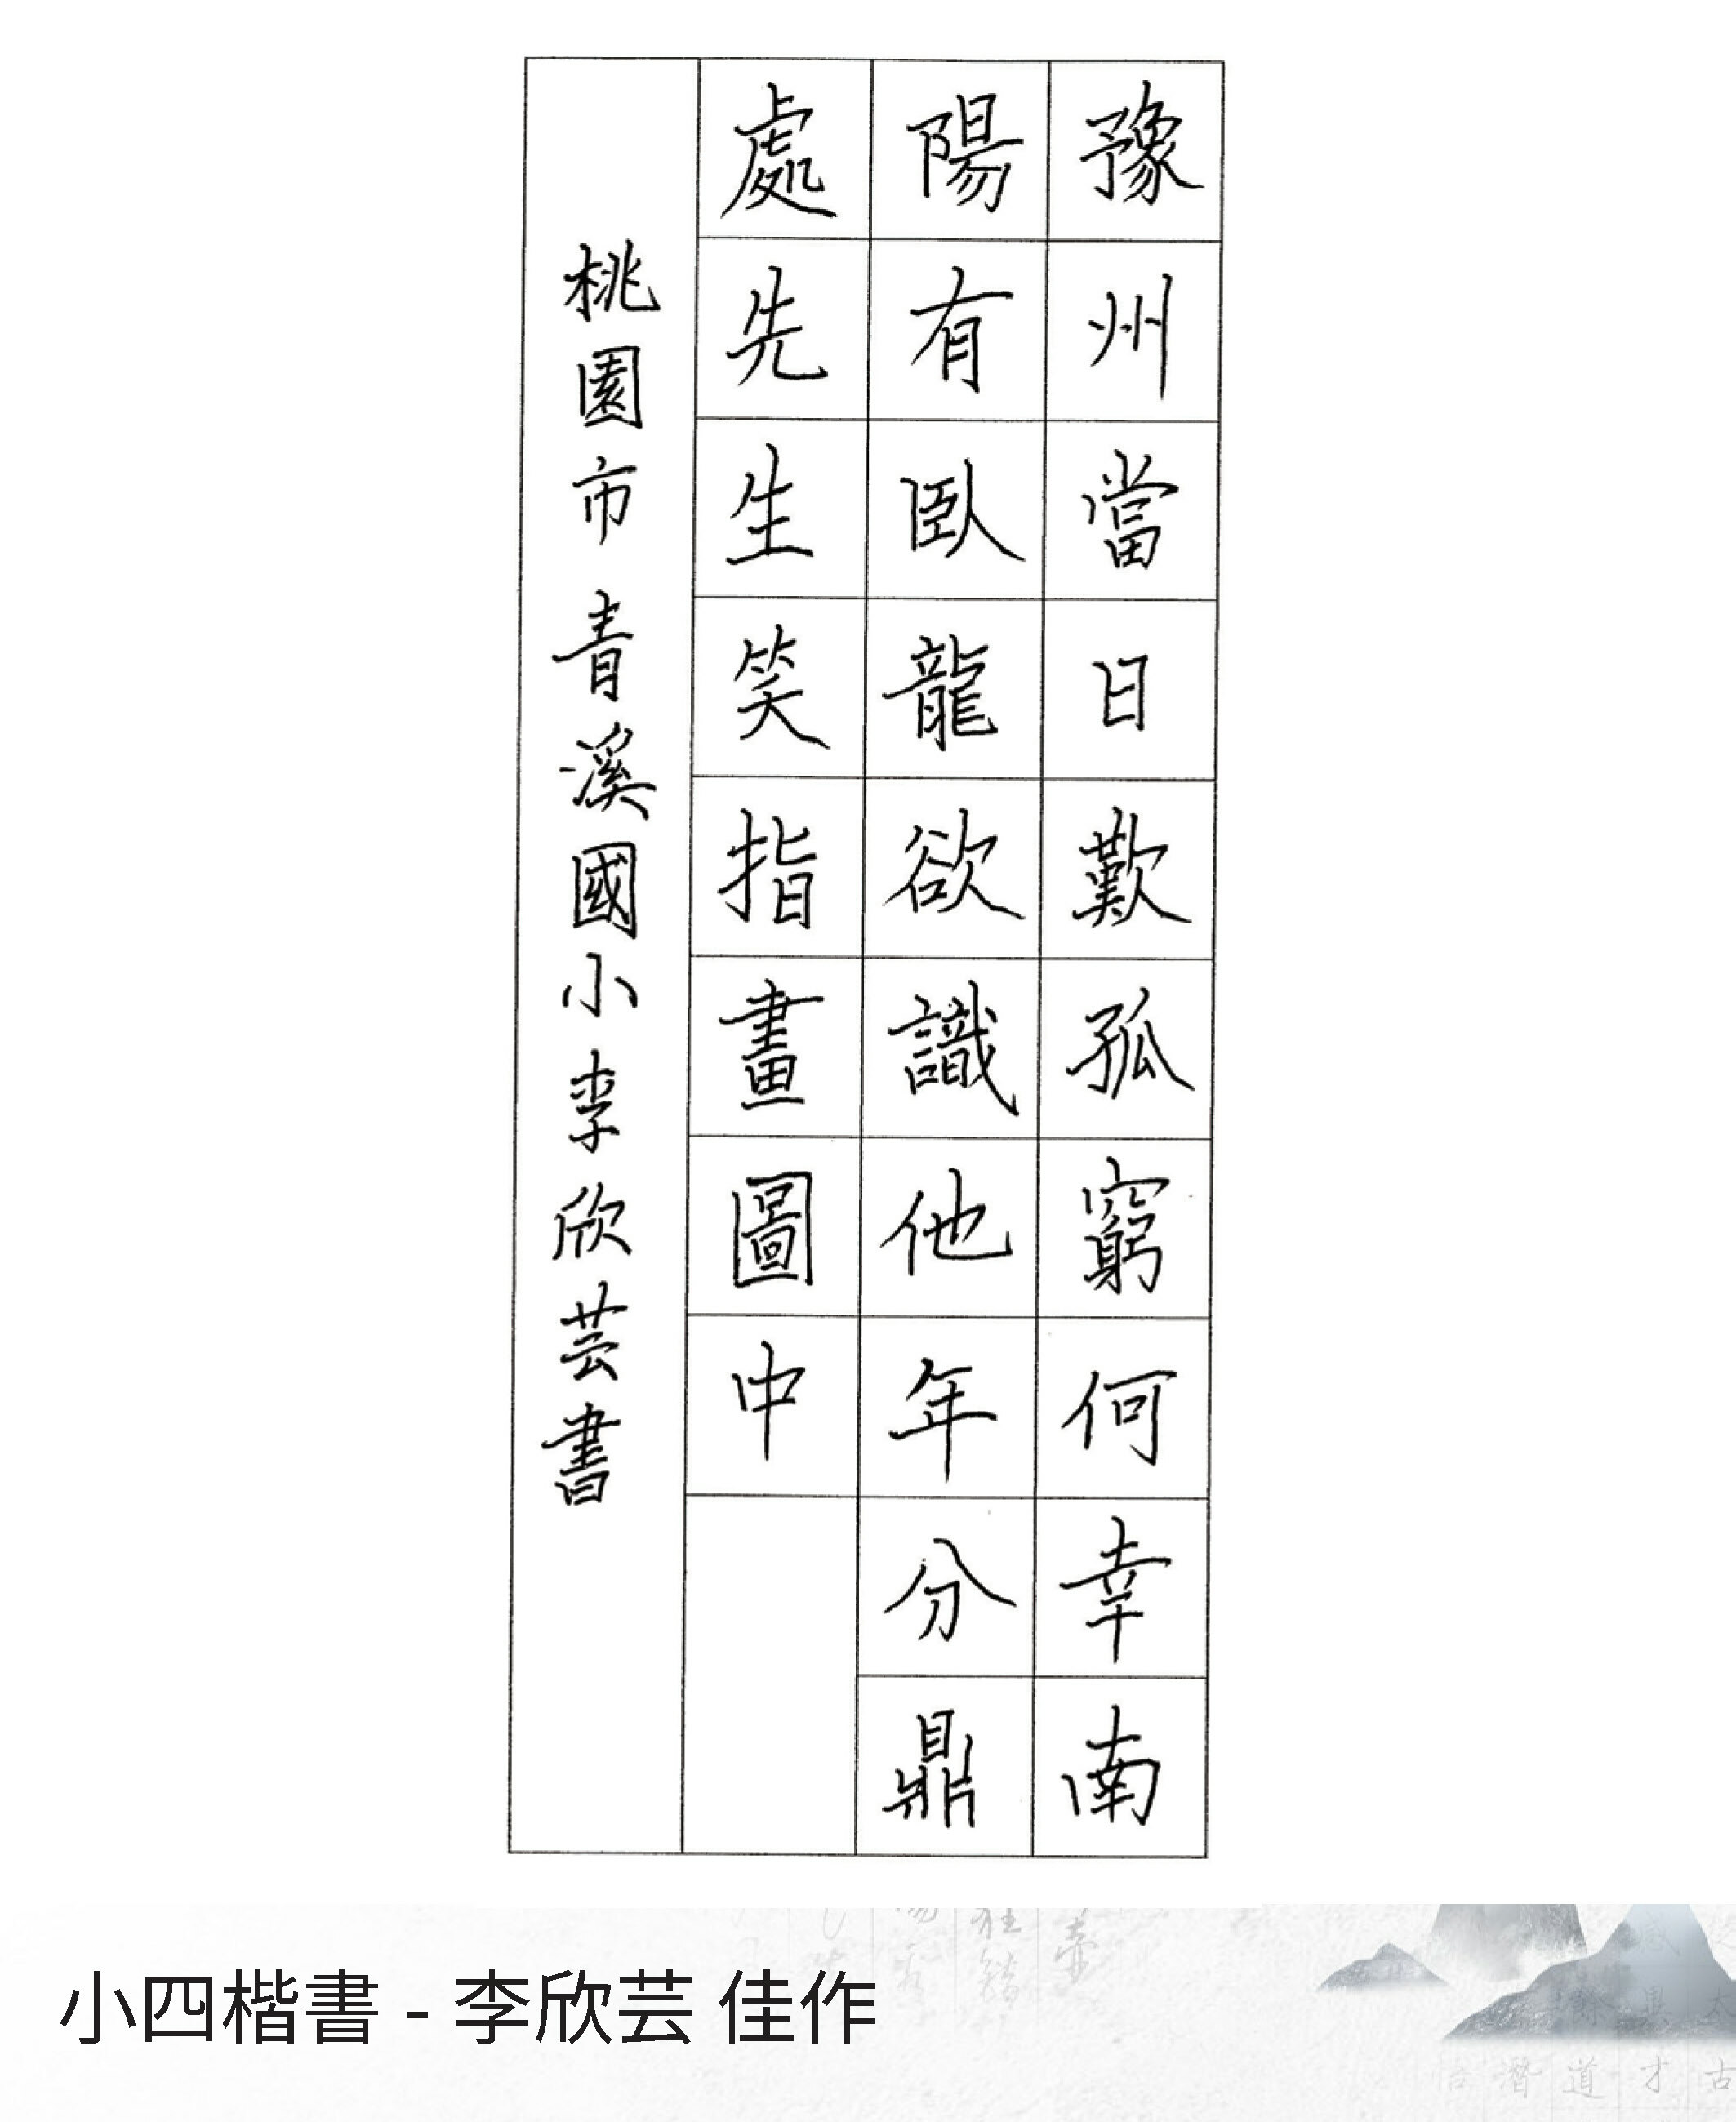 豫州當日歎孤窮何幸南
陽有臥龍欲識他年分鼎
處先生笑指畫圖中
桃園市青溪國小李欣芸書
小四楷書 - 李欣芸 佳作